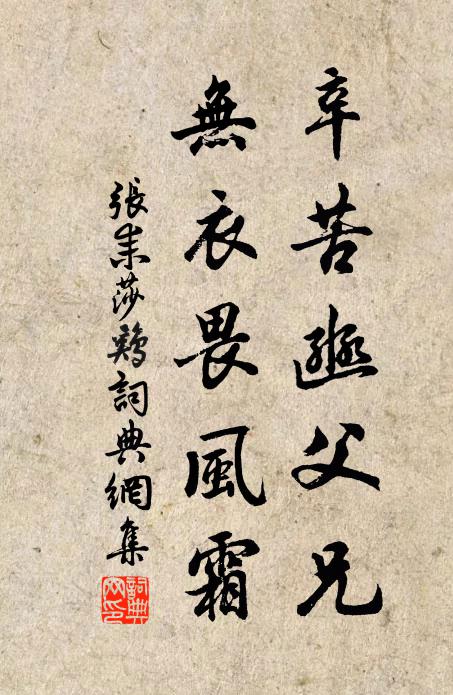 辛苦豳父兄
無衣畏風霜
張耒莎鷄詞典網集
詞典
网印